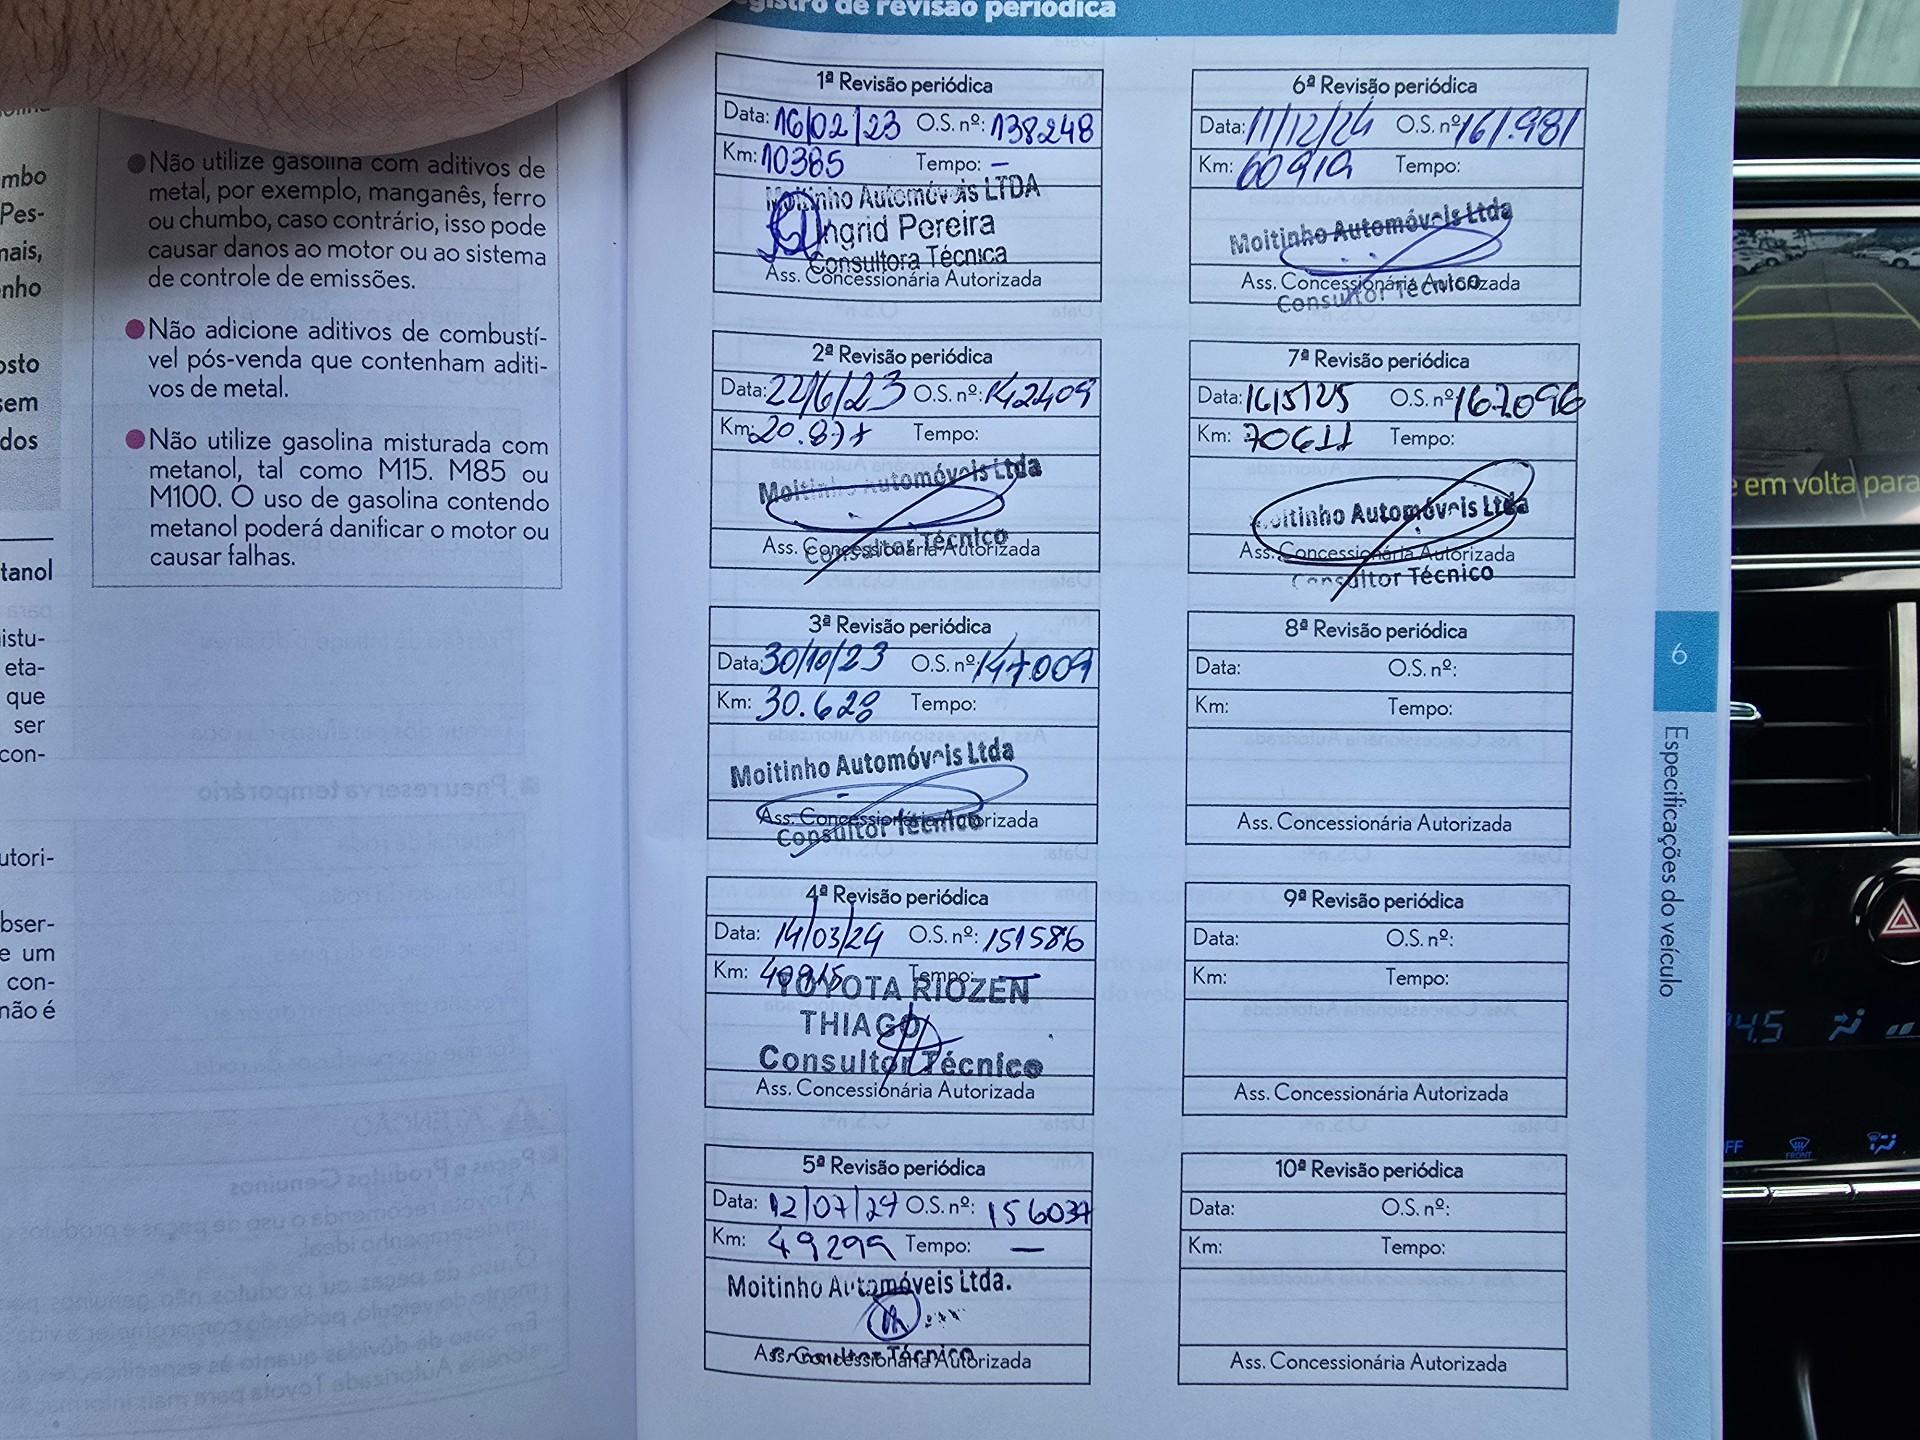 mbo
Pes-
mais,
nho
osto
sem
dos
tanol
istu-
eta-
que
ser
con-
utori-
bser-
e um
con-
não é
Não utilize gasolina com aditivos de
metal, por exemplo, manganês, ferro
ou chumbo, caso contrário, isso pode
causar danos ao motor ou ao sistema
de controle de emissões.
Não adicione aditivos de combustí-
vel pós-venda que contenham aditi-
vos de metal.
Não utilize gasolina misturada com
metanol, tal como M15. M85 ou
M100. O uso de gasolina contendo
metanol poderá danificar o motor ou
causar falhas.
gistro de revisão periódica
1ª Revisão periódica
Data: 16/02/23 O.S. nº: 138248
Km: 10385 Tempo: –
Moitinho Automóveis LTDA
Ingrid Pereira
Consultora Técnica
Ass. Concessionária Autorizada
2ª Revisão periódica
Data: 22/6/23 O.S. nº: 142409
Km: Tempo:
Moitinho Automóveis Ltda
Consultor Técnico
Ass. Concessionária Autorizada
3ª Revisão periódica
Data: 30/10/23 O.S. nº: 147.009
Km: 30.628 Tempo:
Moitinho Automóveis Ltda
Ass. Concessionária Autorizada
Consultor Técnico
4ª Revisão periódica
Data: 14/03/24 O.S. nº: 151586
Km: Tempo: –
TOYOTA RIOZEN
THIAGO
Consultor Técnico
Ass. Concessionária Autorizada
5ª Revisão periódica
Data: 12/07/24 O.S. nº: 156037
Km: 49299 Tempo: –
Moitinho Automóveis Ltda.
Consultor Técnico
Ass. Concessionária Autorizada
6ª Revisão periódica
Data: 11/12/24 O.S. nº 161.981
Km: 60919 Tempo:
Moitinho Automóveis Ltda
Ass. Concessionária Autorizada
Consultor Técnico
7ª Revisão periódica
Data: 16/5/25 O.S. nº 167.096
Km: 70611 Tempo:
Moitinho Automóveis Ltda
Ass. Concessionária Autorizada
Consultor Técnico
8ª Revisão periódica
Data: O.S. nº:
Km: Tempo:
Ass. Concessionária Autorizada
9ª Revisão periódica
Data: O.S. nº:
Km: Tempo:
Ass. Concessionária Autorizada
10ª Revisão periódica
Data: O.S. nº:
Km: Tempo:
Ass. Concessionária Autorizada
6
Especificações do veículo
e em volta para
4.5
FF
FRONT